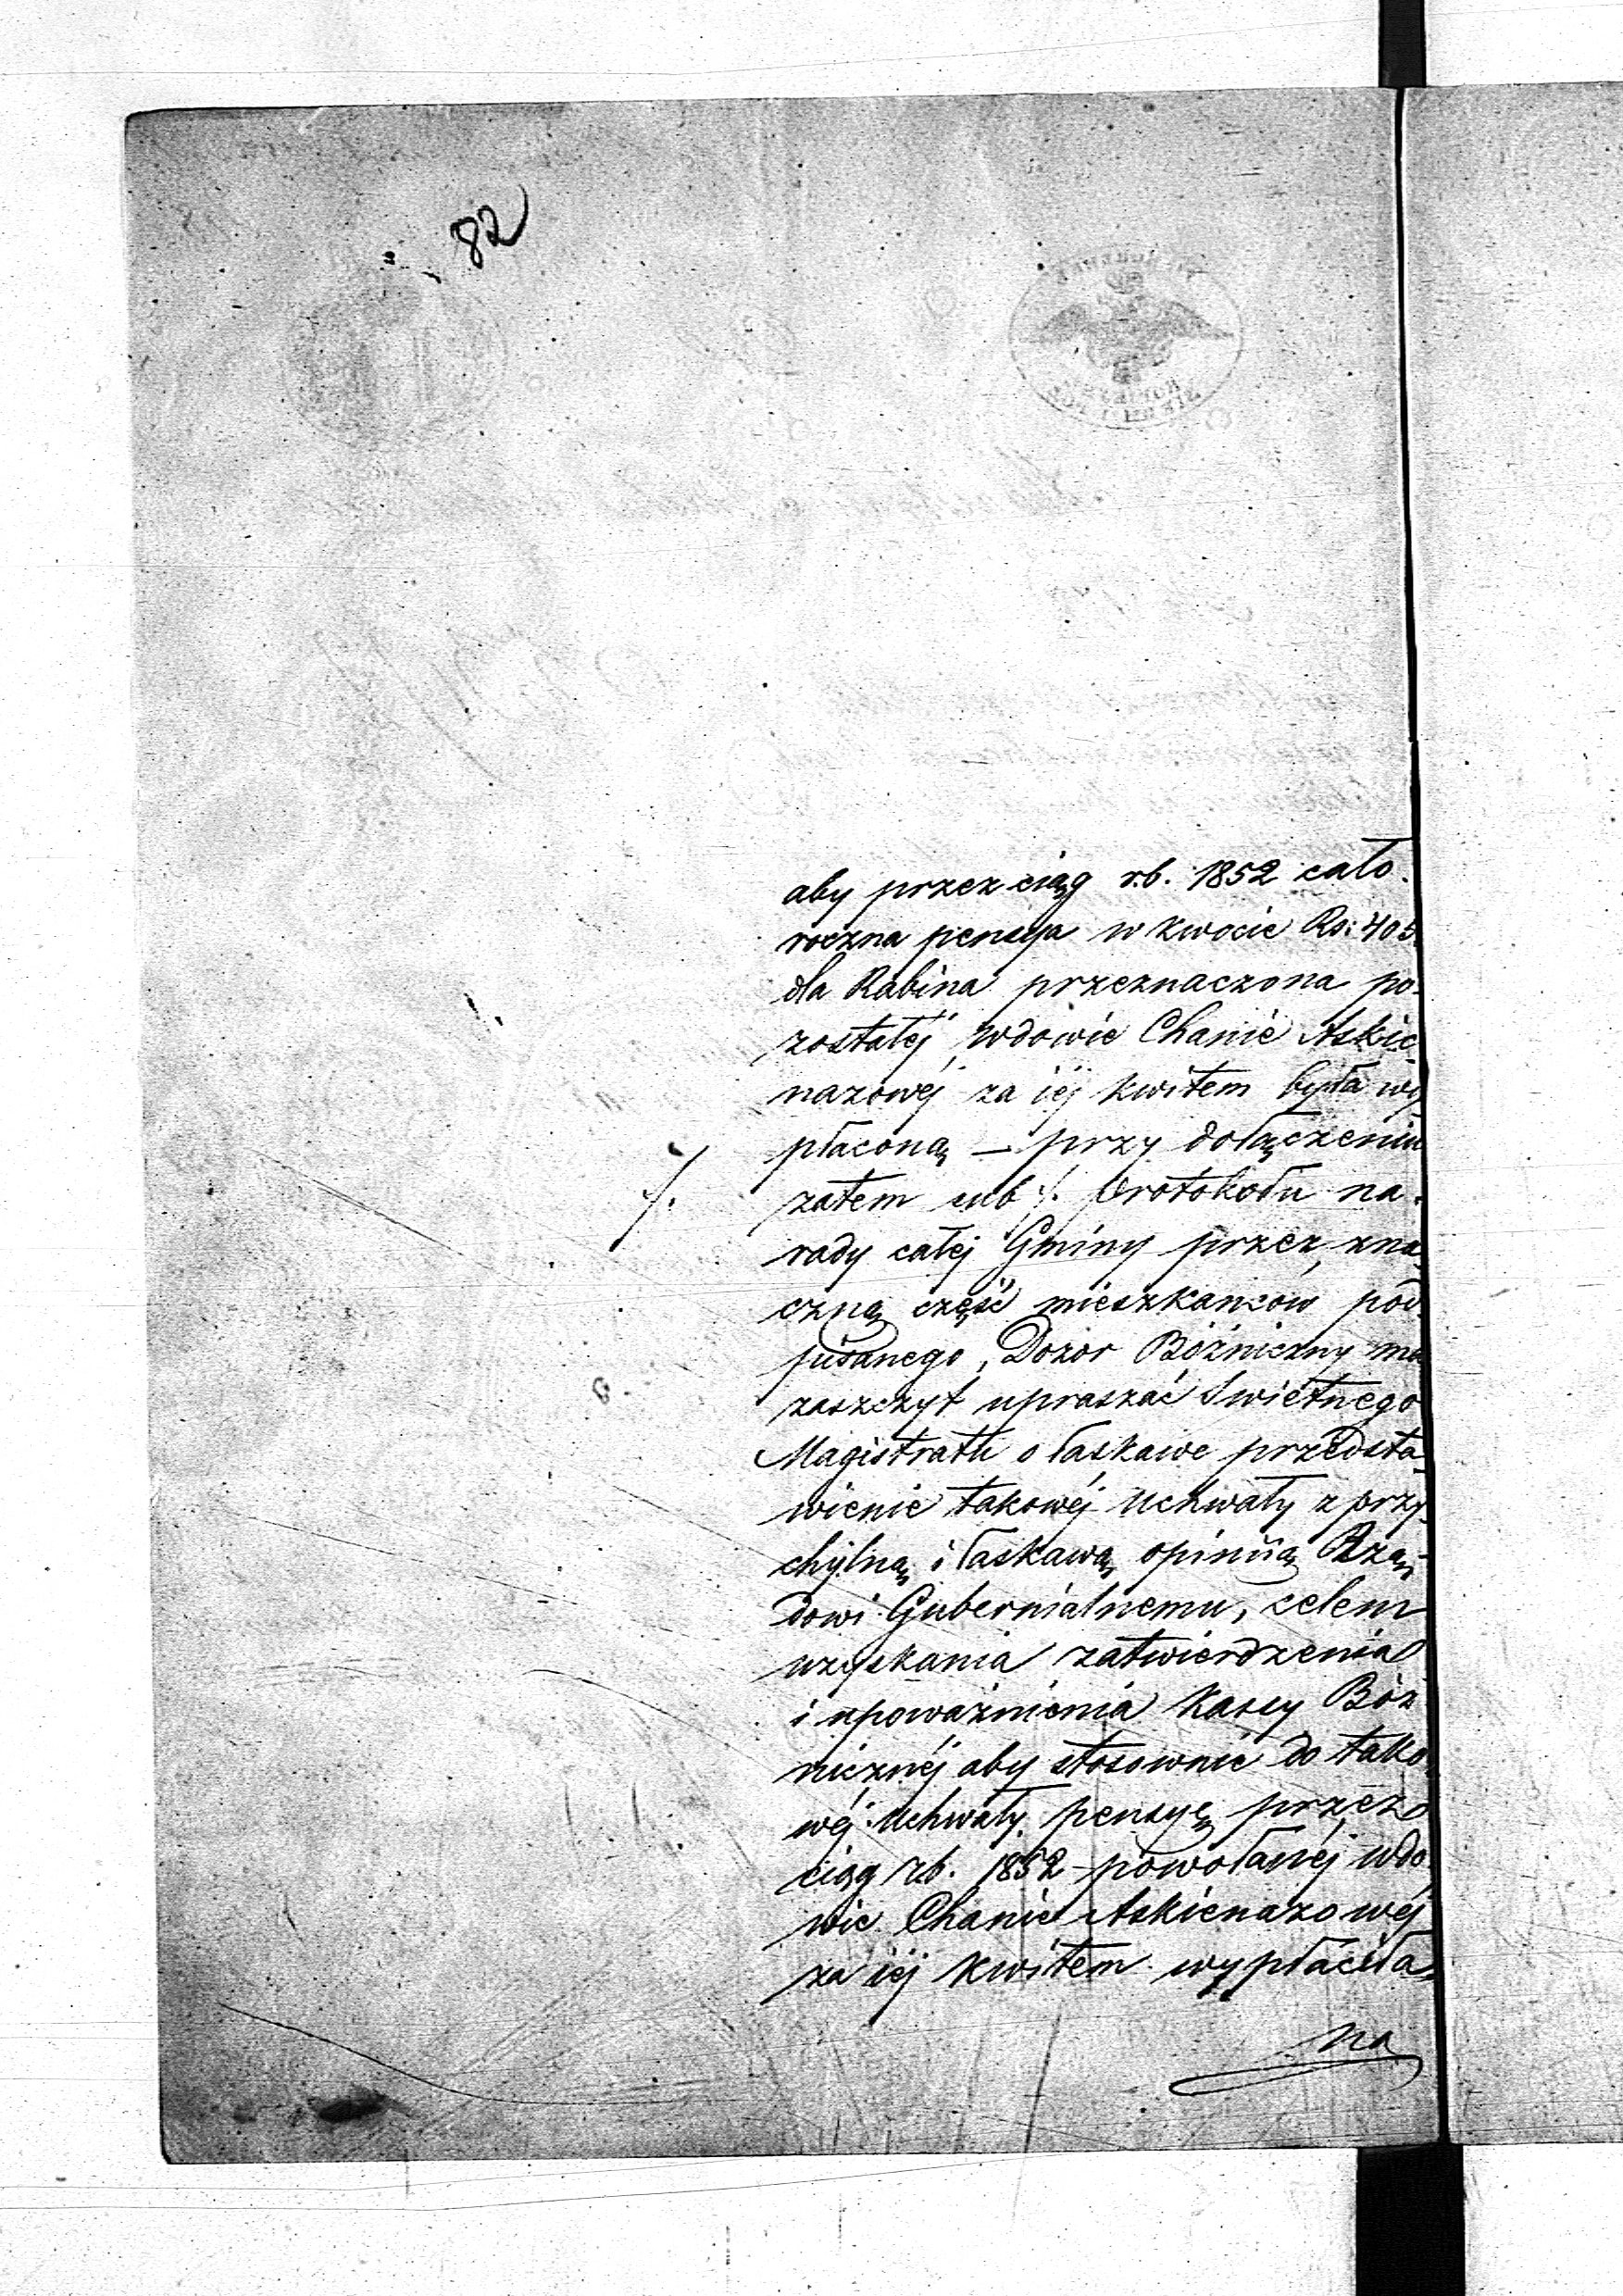 82
aby przez ciąg r.b. 1852 cało-
roczna pensya w kwocie Rs: 405.
dla Rabina przeznaczona po-
zostałéj wdowie Chanie Askie-
nazowéj za iéj kwitem była wy
płaconą – przy dołączeniu
zatem sub ·/. Protokołu na-
rady całéj Gminy przez zna-
czną część mieszkańców pod
pisanego, Dozór Bóźniczny ma
zaszczyt upraszać Świetnego
Magistratu o łaskawe przedsta-
wienie takowéj Uchwały z przy-
chylną i łaskawą opiniią Rzą-
dowi Gubernialnemu, celem
uzyskania zatwierdzenia
i upoważnienia Kassy Bóż
nicznéj aby stosownie do tako-
wéj Uchwały pensyę przez
ciąg r.b. 1852 powołanéj wdo
wie Chanie Askienazowéj
za iéj kwitem wypłaciła,
na